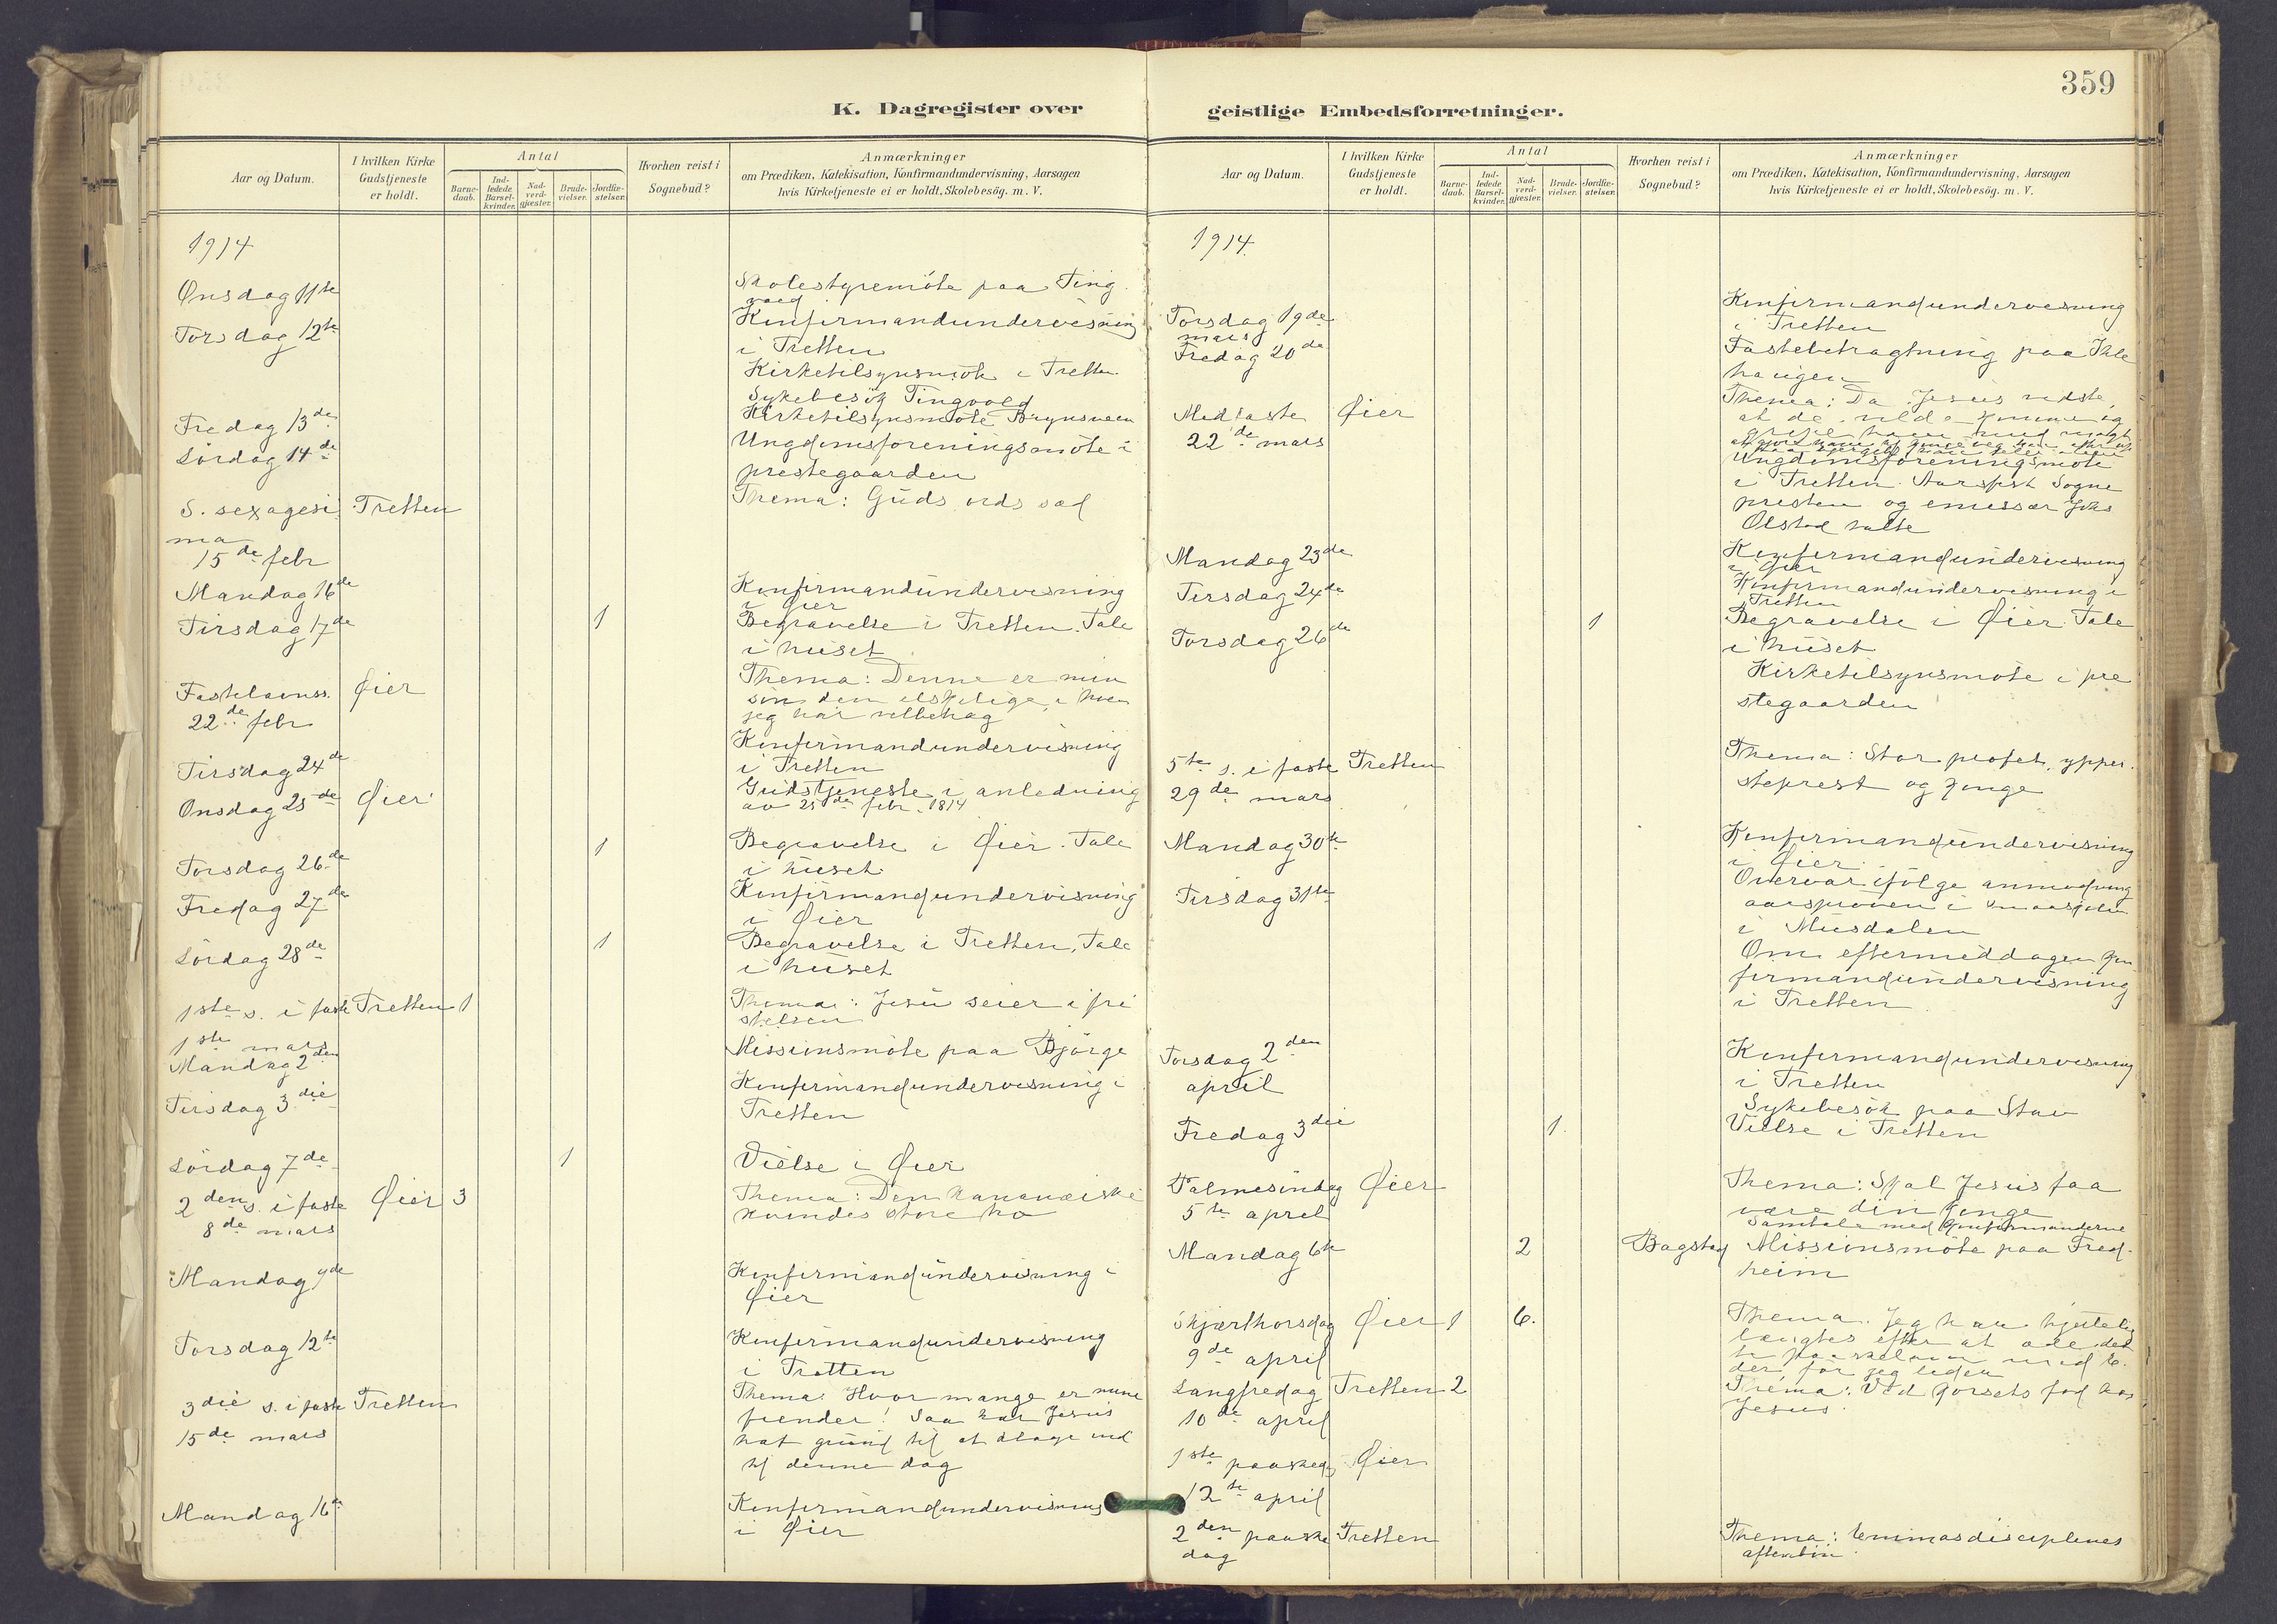 359
K. Dagregister over
Aar og Datum.
I hvilken Kirke
Gudstjeneste
er holdt.
Antal
Barne-
daab.
Ind-
ledede
Barsel-
kvinder.
Nad-
verd-
gjæster.
Brude-
vielser.
Jordfæ-
stelser.
Hvorhen reist i
Sognebud?
Anmærkninger
om Prædiken, Katekisation, Konfirmandundervisning, Aarsagen
hvis Kirketjeneste ei er holdt, Skolebesög. m. V.
1914
Onsdag 11te
Skolestyremöte paa Ting
vold
Torsdag 12te
Konfirmandundervisning
i Tretten
Kirketilsynsmöte i Tretten
Sykebesök Tingvold
Fredag 13de
Kirketilsynsmöte Brynsveen
Lördag 14de
Ungdomsforeningsmöte i
prestegaarden
S. sexagesi Tretten
ma
15de febr
Thema: Guds ords sæd
Mandag 16de
Konfirmandundervisning
i Øier
Tirsdag 17de 1
Begravelse i Tretten. Tale
i huset
Fastelavnss. Øier
22de febr
Thema: Denne er min
sön den elskelige, i hvem
jeg har velbehag
Tirsdag 24de
Konfirmandundervisning
i Tretten
Onsdag 25de Øier
Gudstjeneste i anledning
av 25de febr. 1814
Torsdag 26de 1
Begravelse i Øier. Tale
i huset
Fredag 27de
Konfirmandundervisning
i Øier
Lördag 28de 1
Begravelse i Tretten, Tale
i huset
1ste s. i faste Tretten 1
1ste mars
Thema: Jesu seier i fri
stelsen
Mandag 2den
Missionsmöte paa Björge
Tirsdag 3die
Konfirmandundervisning i
Tretten
Lördag 7de 1
Vielse i Øier
2den s. i faste Øier 3
8de mars
Thema: Den kananæiske
kvindes store tro
Mandag 9de
Konfirmandundervisning i
Øier
Torsdag 12te
Konfirmandundervisning
i Tretten
3die s. i faste Tretten
15de mars
Thema: Hvor mange er mine
fiender! Saa har Jesus
hat grund til at klage ind
til denne dag
Mandag 16de
Konfirmandundervisning
i Øier
geistlige Embedsforretninger.
Aar og Datum.
I hvilken Kirke
Gudstjeneste
er holdt.
Antal
Barne-
daab.
Ind-
ledede
Barsel-
kvinder.
Nad-
verd-
gjæster.
Brude-
vielser.
Jordfæ-
stelser.
Hvorhen reist i
Sognebud?
Anmærkninger
om Prædiken, Katekisation, Konfirmandundervisning, Aarsagen
hvis Kirketjeneste ei er holdt, Skolebesög. m. V.
1914
Torsdag 19de
mars
Konfirmandundervisning
i Tretten
Fredag 20de
Fastebetragtning paa
haugen
Midfaste Øier
22de mars
Thema: Da Jesus vidste,
at de vilde komme og
gripe ham med magt
Ungdomsforeningsmöte
i Tretten. Aarsfest Sogne
presten og emissær Johs
Olstad talte
Mandag 23de
Konfirmandundervisning
i Øier
Tirsdag 24de
Konfirmandundervisning i
Tretten
Torsdag 26de 1
Begravelse i Øier. Tale
i huset
Kirketilsynsmöte i pre
stegaarden
5te s. i faste Tretten
29de mars
Thema: Stor profet, ypper
steprest og konge
Mandag 30te
Konfirmandundervisning
i Øier
Tirsdag 31te
Overvar ifölge anmodning
aarspröven i smaaskolen
i Musdalen
Om eftermiddagen kon
firmandundervisning
i Tretten
Torsdag 2den
april
Konfirmandundervisning
i Tretten
Sykebesök paa Stav
Fredag 3die 1
Vielse i Tretten
Palmesöndag Øier
5te april
Thema: Skal Jesus faa
være din konge
Samtale med konfirmanderne
Mandag 6te 2 Bagstad
Missionsmöte paa Fred-
heim
Skjærthorsdag Øier 1 6.
9de april
Thema. Jeg har hjertelig
længtes efter at æte det
te paaskelam med e.
der för jeg lider
Langfredag Tretten 2
10de april
Thema: Ved korsets fod hos
Jesus
1ste paaskedg Øier
12te april
2den paaske Tretten
dag
Thema: Emmasdisciplenes
aftenbön